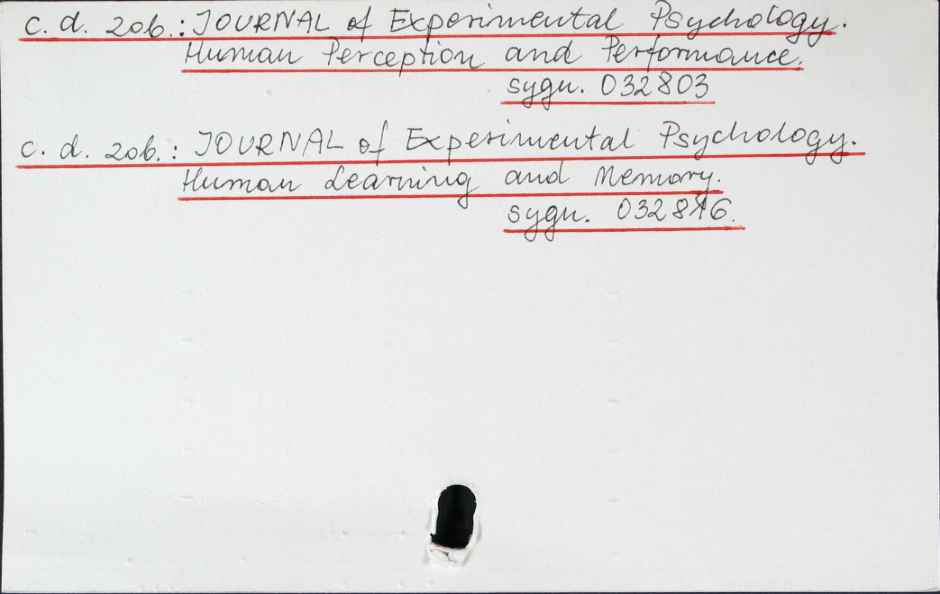 c. d. zob.: JOURNAL of Experimental Psychology.
Human Perception and Performance.
sygn. 032803
c. d. zob.: JOURNAL of Experimental Psychology.
Human Learning and Memory.
sygn. 032816.